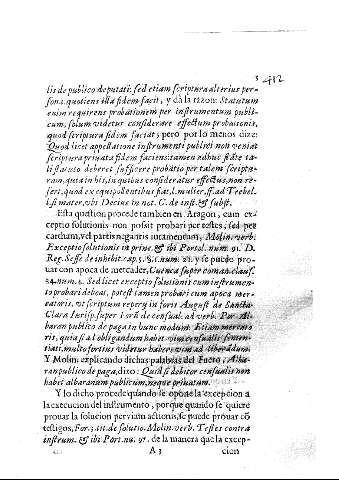 3 412
lis de publico deputati: sed etiam scriptura alterius per-
sonæ, quotiens illa fidem facit, y dà la razon: Statutum
enim requirens probationem per instrumentum publi-
cum, solum videtur considerare effectum probationis,
quod scriptura fidem faciat; pero por lo menos dize:
Quod licet appellatione instrumenti publici non veniat
scriptura priuata fidem faciens: tamen adhuc stãte ta-
li statuto deberet sufficere probatio per talem scriptu-
ram, quia in his, in quibus consideratur effectus, non re-
fert, quod ex equipollentibus fiat, l. mulier, ff. ad Trebel.
l. si mater, vbi Decius in not. C. de inst. & subst.
Esta question procede tambien en Aragon, cum ex-
ceptio solutionis non possit probari per testes, sed per
cartham, vel partis negantis iuramentum, Molin. verb.
Exceptio solutionis in princ. & ibi Portol. num. 91. D.
Reg. Sesse de inhibit. cap. 5. §. 1. num. 21. y se puede pro-
uar con apoca de mercader, Cuenca super comun. clausf.
24. num. 5. Sed licet exceptio solutionis cum instrumen-
to probari debeat, potest tamen probari cum apoca mer-
catoris, vt scriptum reperi in foris August. de Sancta
Clara Iurisp. super 1. orũ de censual. ad verb. Per Al-
baran publico de paga in hunc modum. Etiam mercato-
ris, quia si al obligandum habet vim censualis senten-
tiati, multo fortius videtur habere vim ad liberãdum.
Y Molin. explicando dichas palabras del Fuero, Alba-
ran publico de paga, dixo: Quid si debitor censualis non
habet albaranum publicum, neque priuatum.
Y lo dicho procede quando se opone la excepcion a
la execucion del instrumento, porque quando se quiere
prouar la solucion per viam actionis, se puede prouar cõ
testigos, For. 3. tit. de solutio. Molin. verb. Testes contra
instrum. & ibi Port. nu. 97. de la manera que la excep-
A 3 cion